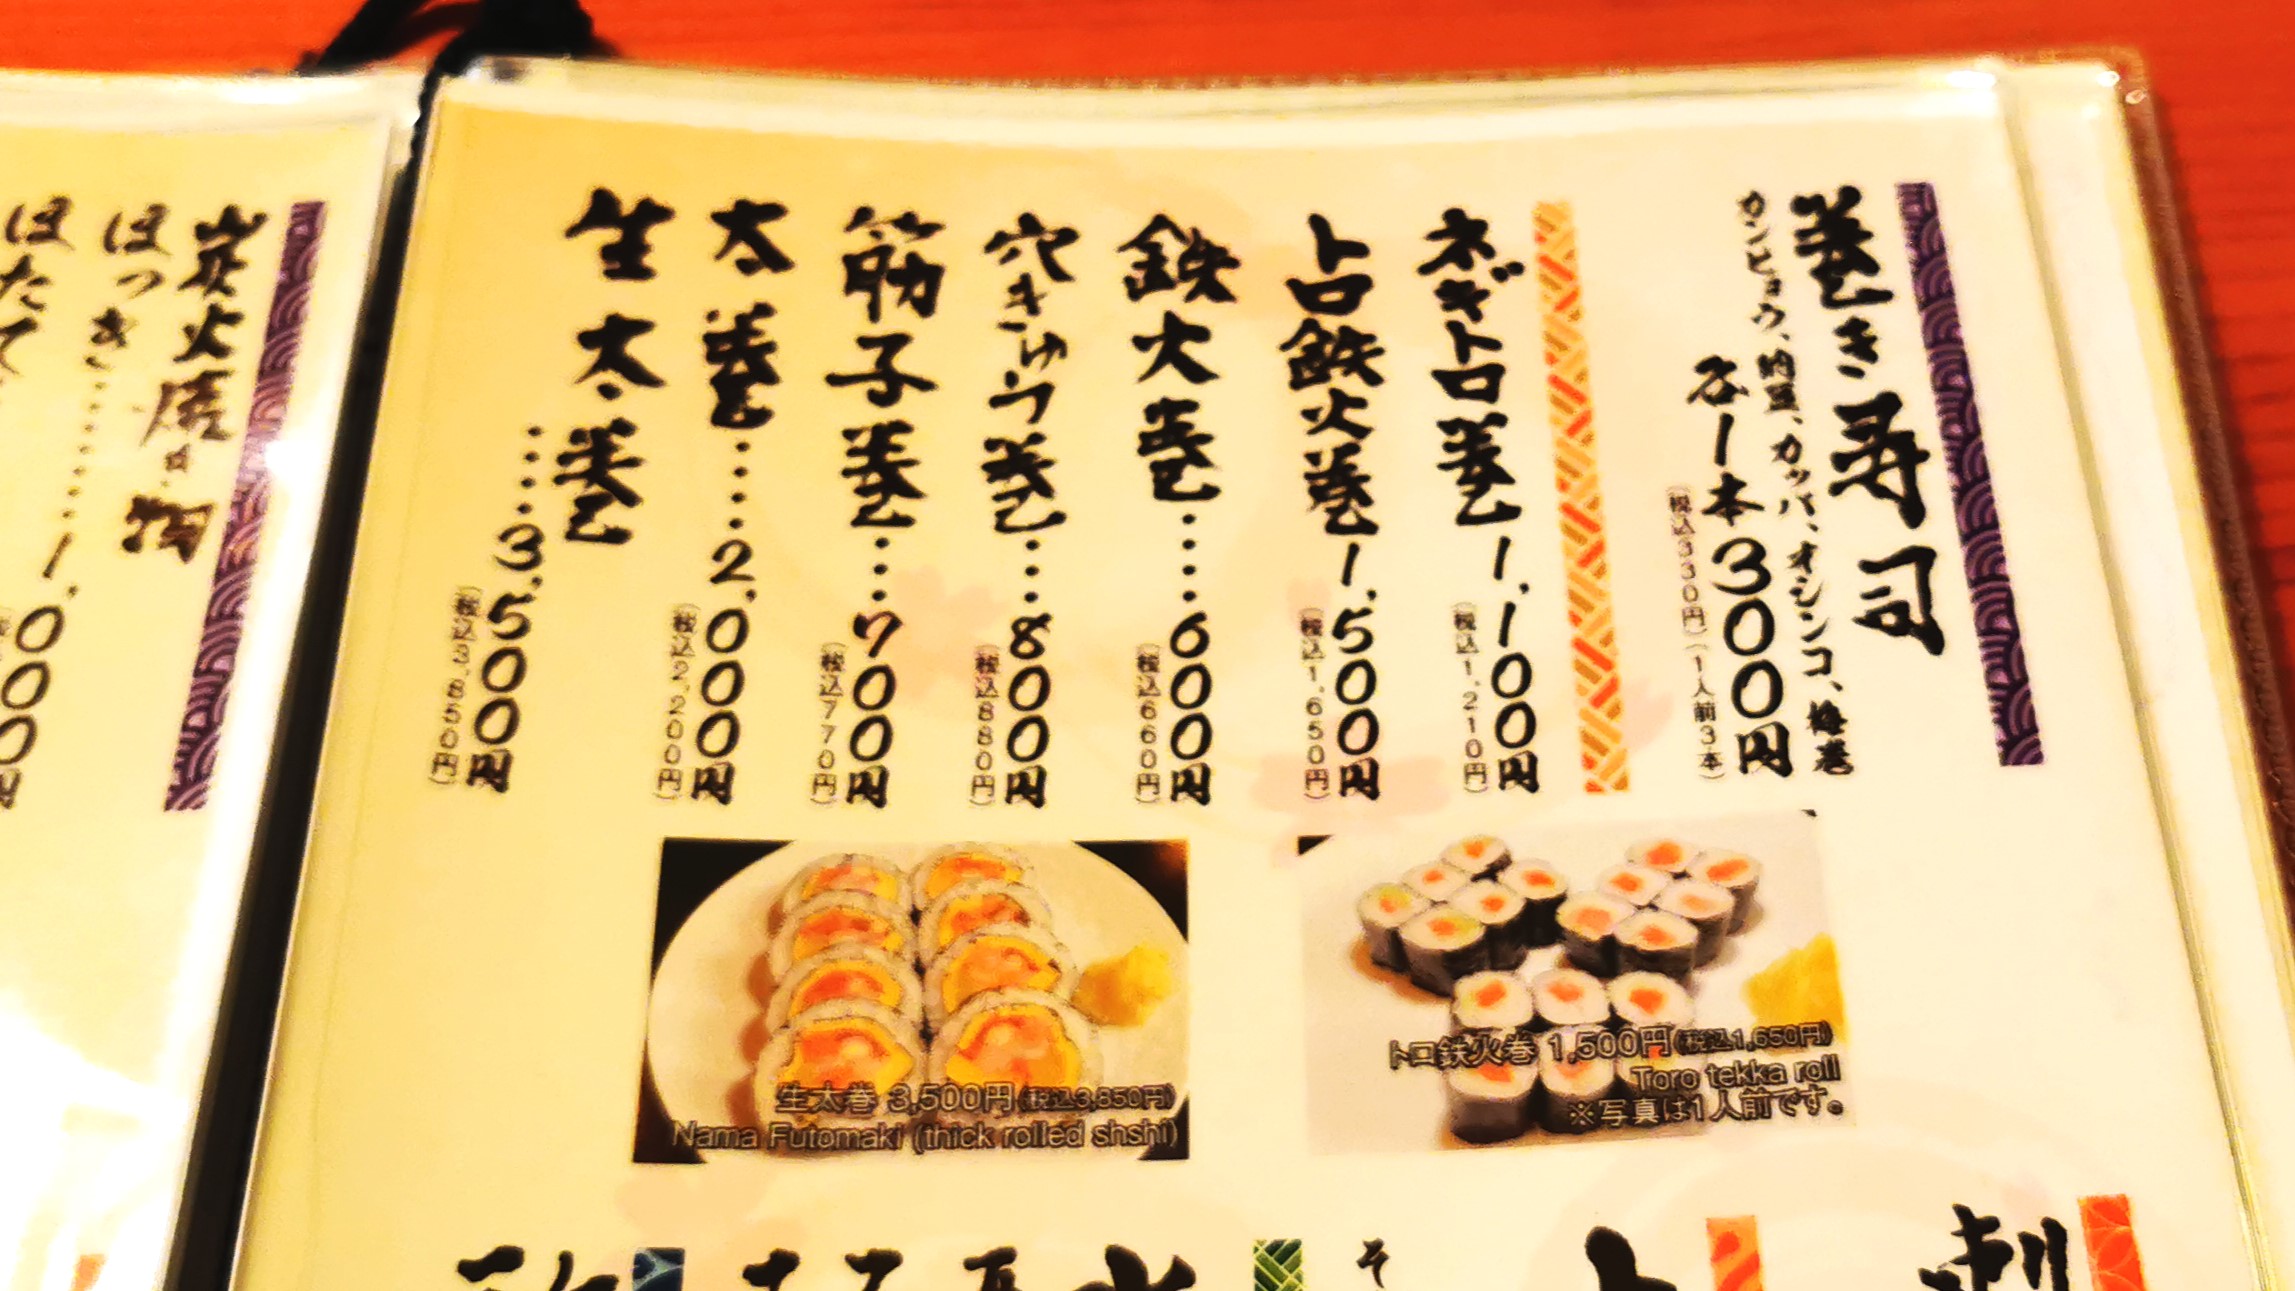 巻き寿司
カンピョウ、納豆、カッパ、オシンコ、梅巻
各一本300円
(税込330円)(1人前3本)
ネギトロ巻1,100円
(税込1,210円)
トロ鉄火巻1,500円
(税込1,650円)
鉄火巻……600円
(税込660円)
穴きゅう巻……800円
(税込880円)
筋子巻……700円
(税込770円)
太巻……2,000円
(税込2,200円)
生太巻
……3,500円
(税込3,850円)
トロ鉄火巻 1,500円(税込1,650円)
Toro tekka roll
※写真は1人前です。
生太巻 3,500円(税込3,850円)
Nama Futomaki (thick rolled shshi)
炭火焼き物
ほっき………1,000円
ほたて
刺
そ